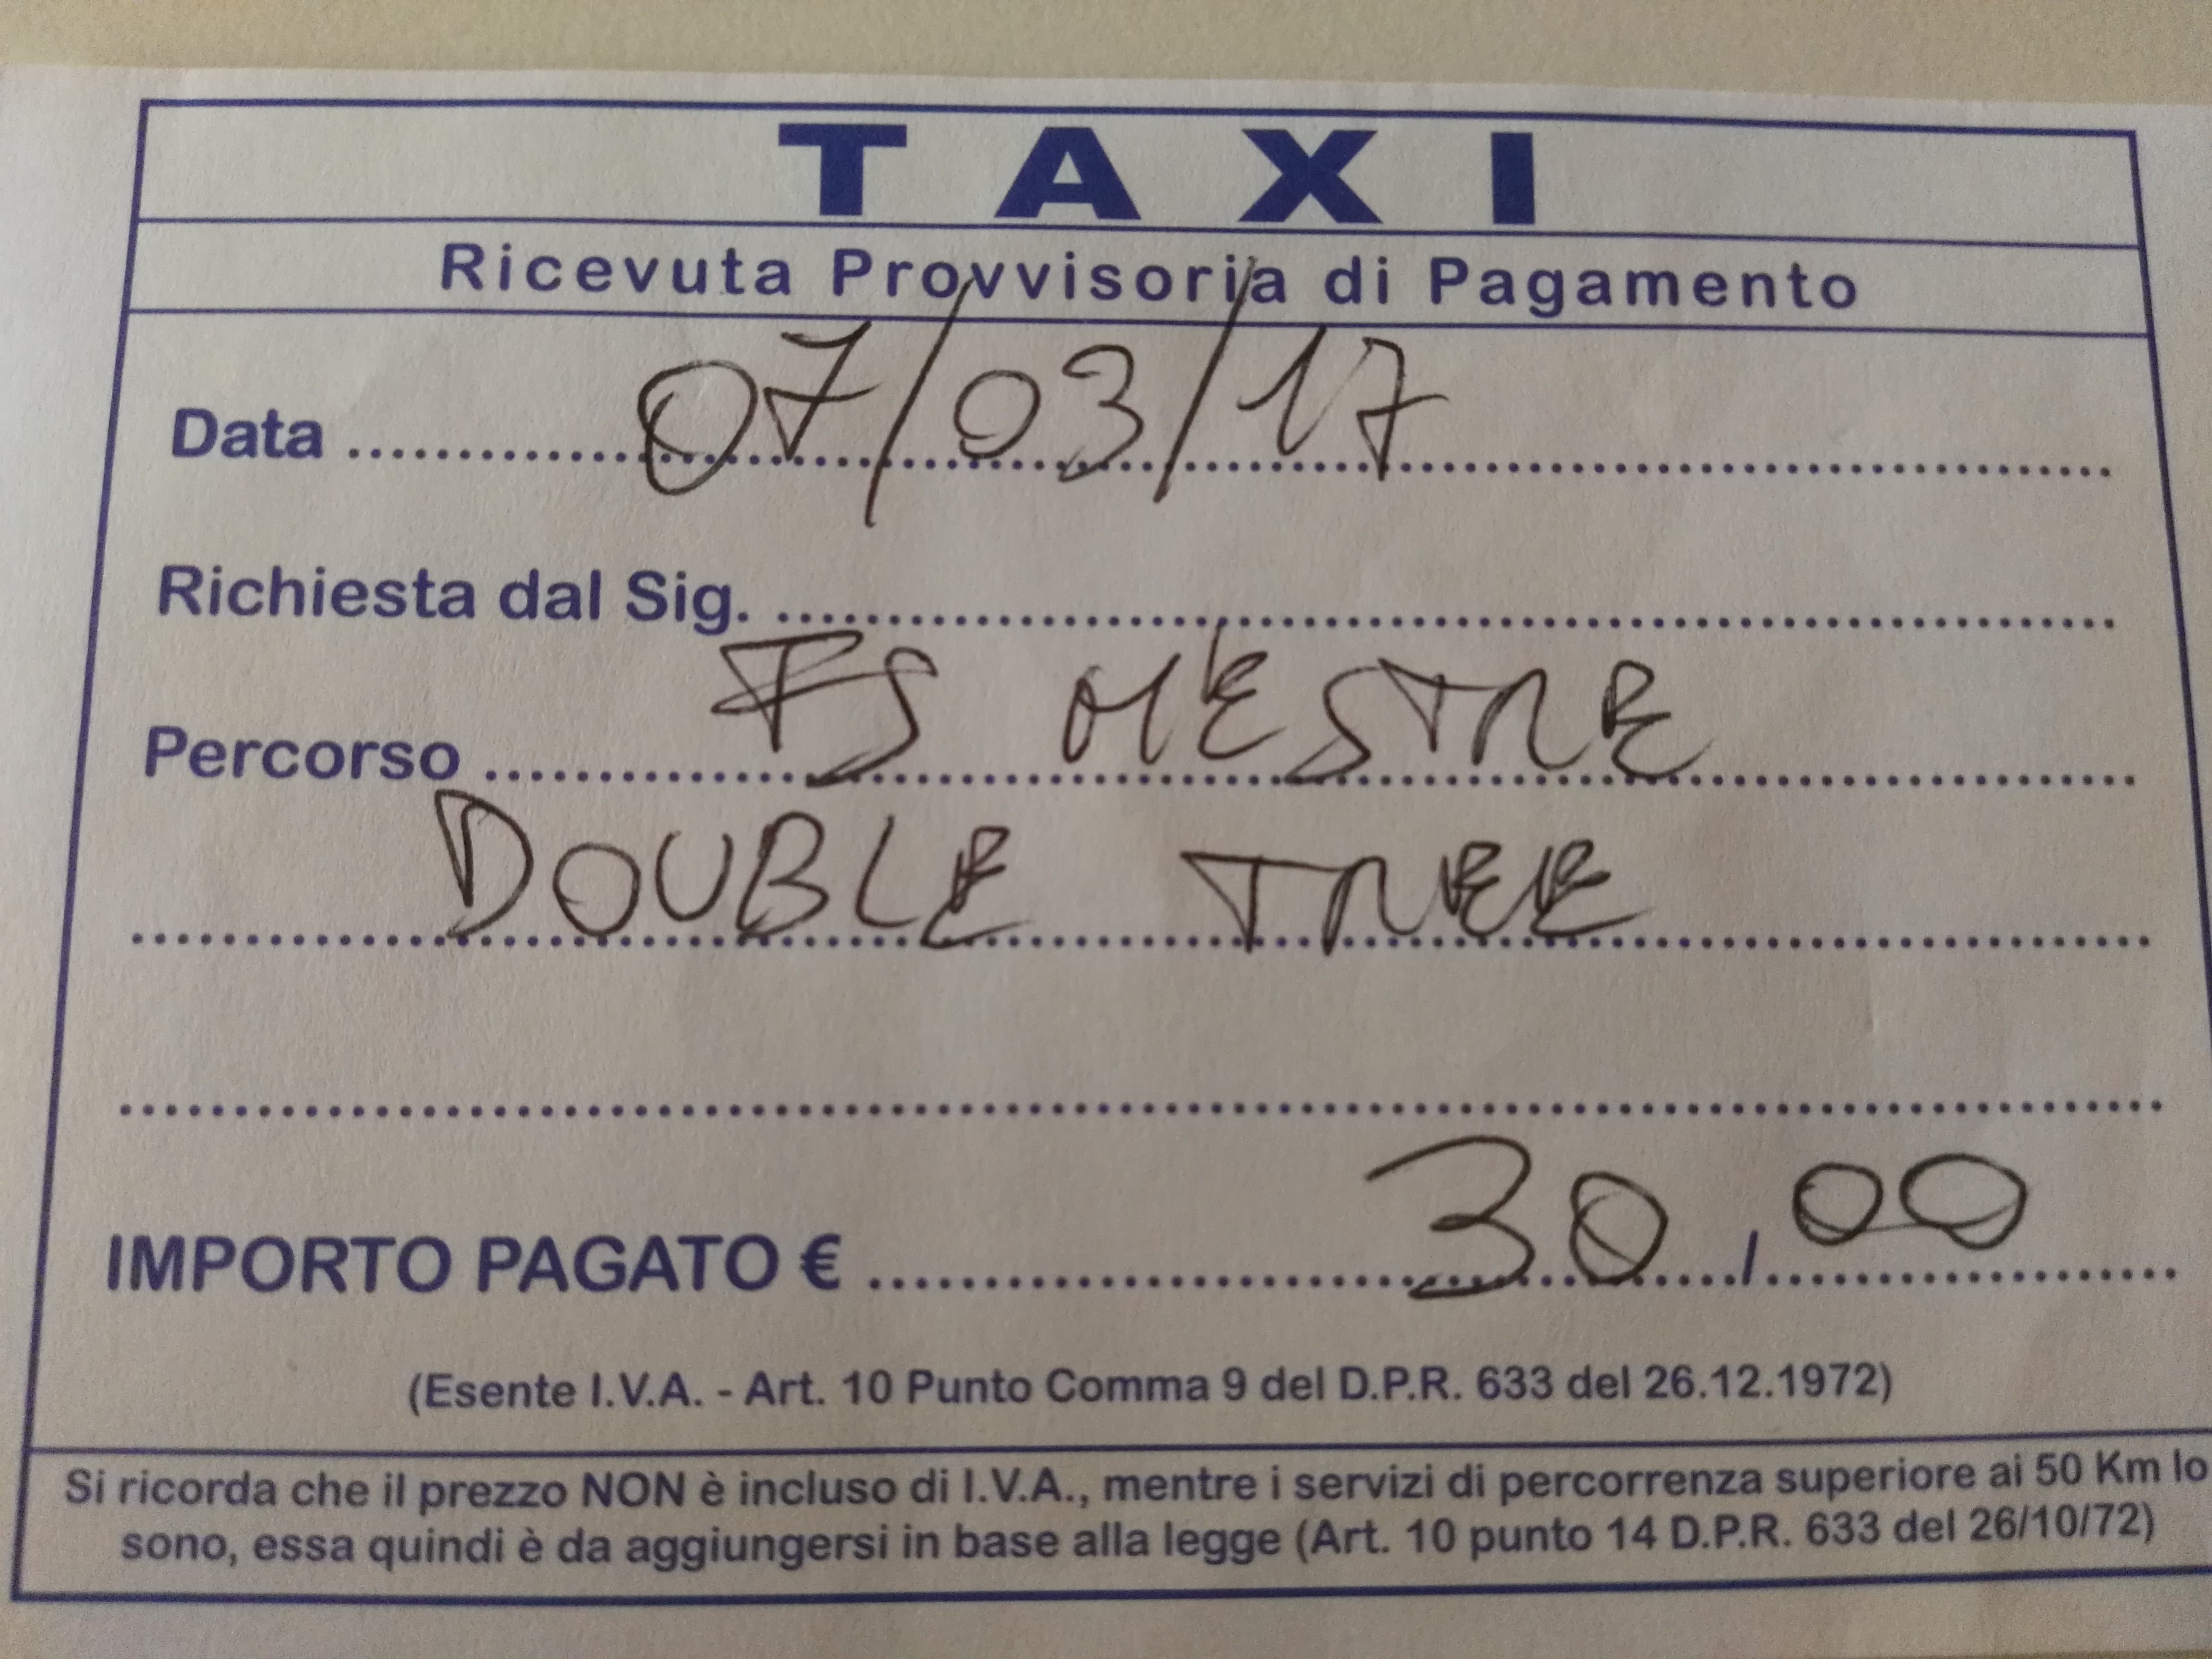 TAXI
Ricevuta Provvisoria di Pagamento
Data 07/03/17
Richiesta dal Sig.
Percorso FS MESTRE
DOUBLE TREE
IMPORTO PAGATO € 30,00
(Esente I.V.A. - Art. 10 Punto Comma 9 del D.P.R. 633 del 26.12.1972)
Si ricorda che il prezzo NON è incluso di I.V.A., mentre i servizi di percorrenza superiore ai 50 Km lo
sono, essa quindi è da aggiungersi in base alla legge (Art. 10 punto 14 D.P.R. 633 del 26/10/72)